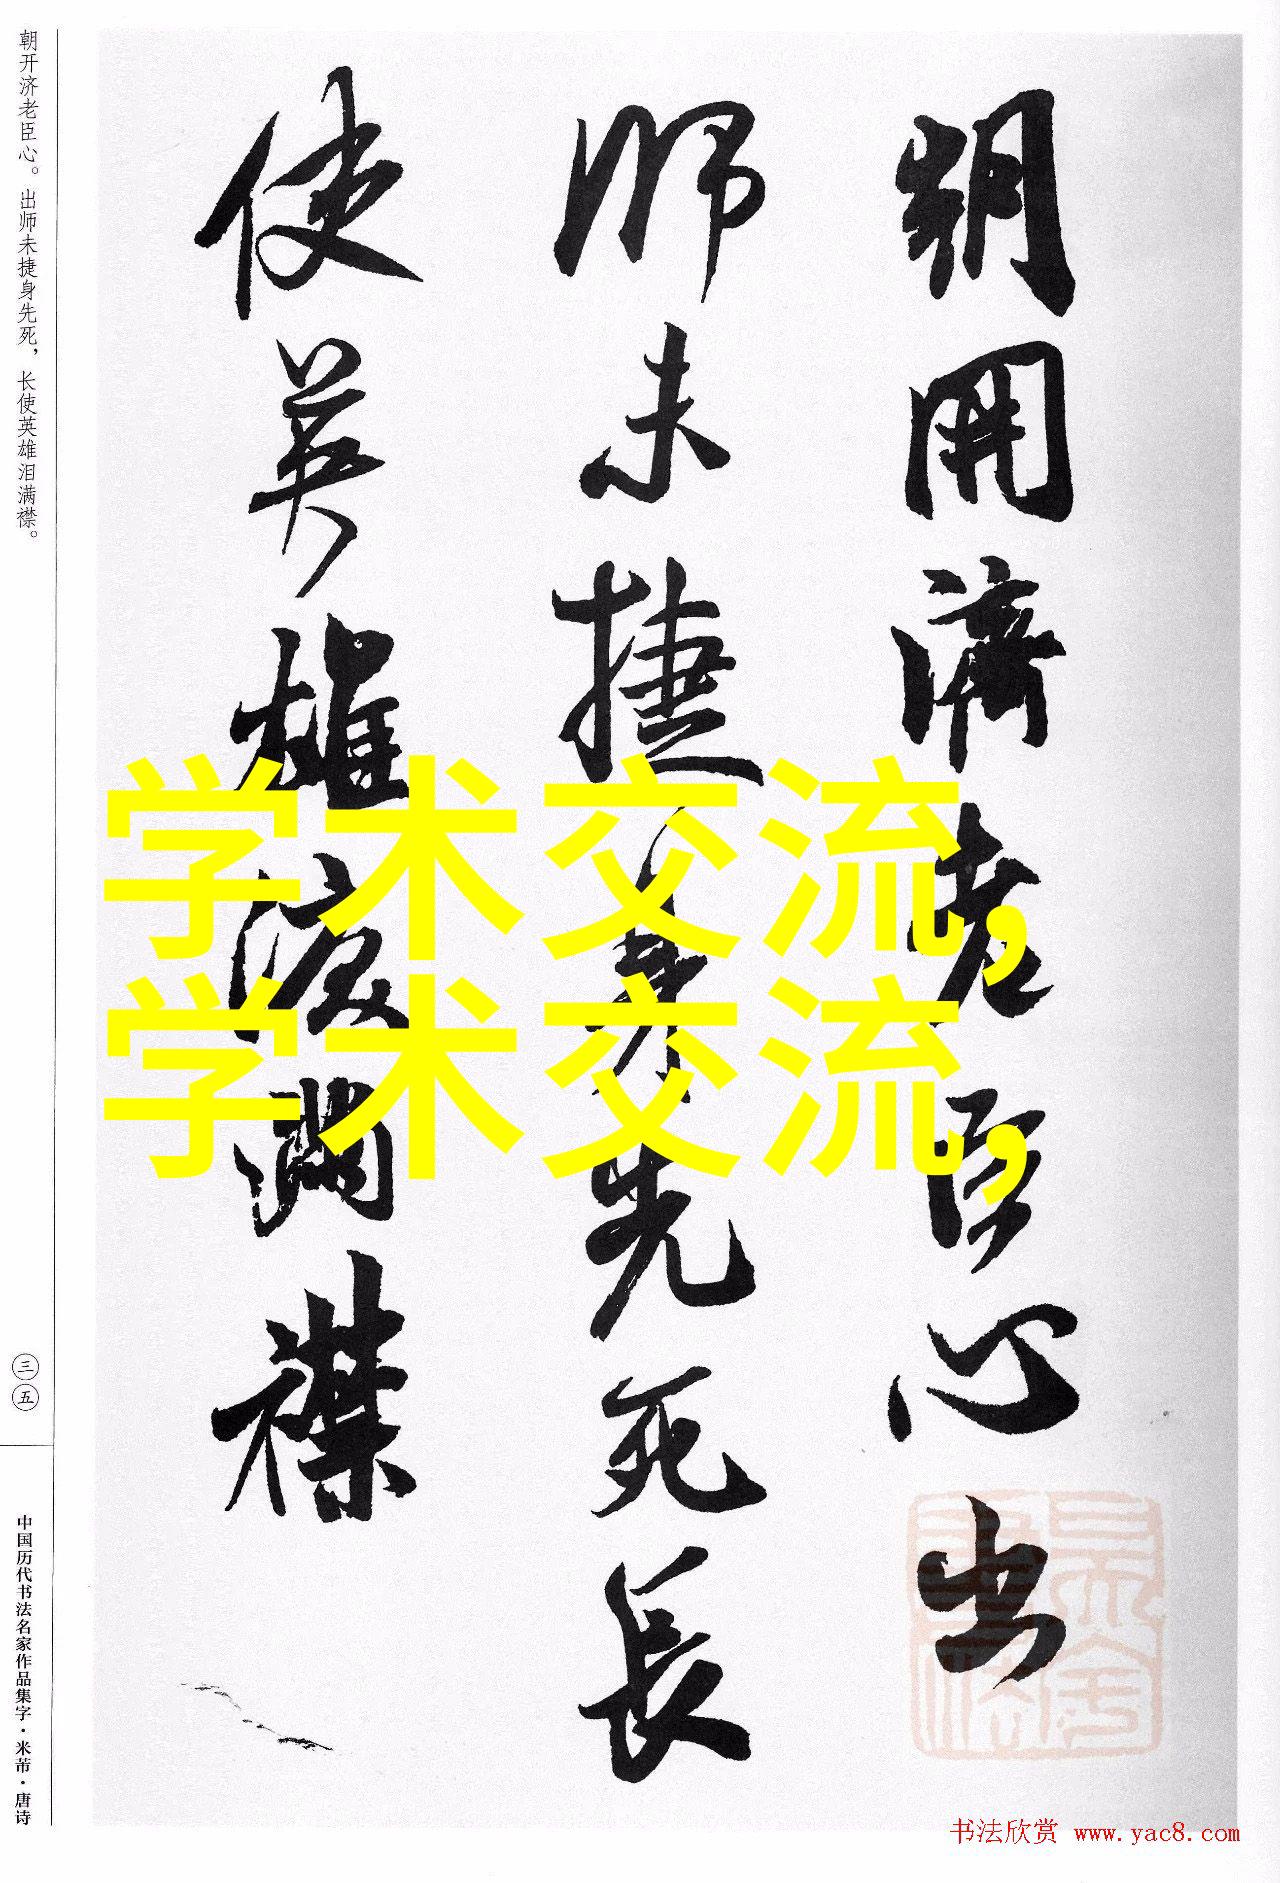 朝開濟老臣心出
師未捷身先死長
使英雄淚滿襟
学术交流,
学术交流,
朝开济老臣心。出师未捷身先死，长使英雄泪满襟。
三五
中国历代书法名家作品集字·米芾·唐诗
书法欣赏 www.yac8.com